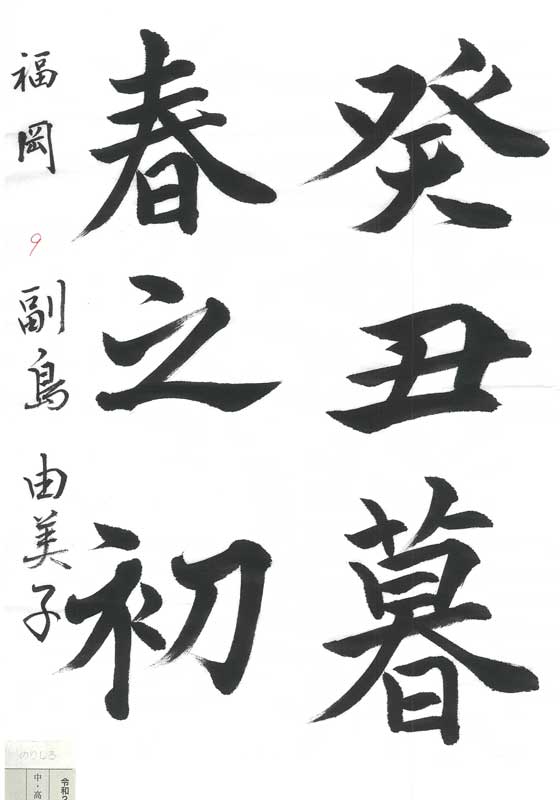 癸丑暮
春之初
福岡 9 副島 由美子
のりしろ
令和
中・高